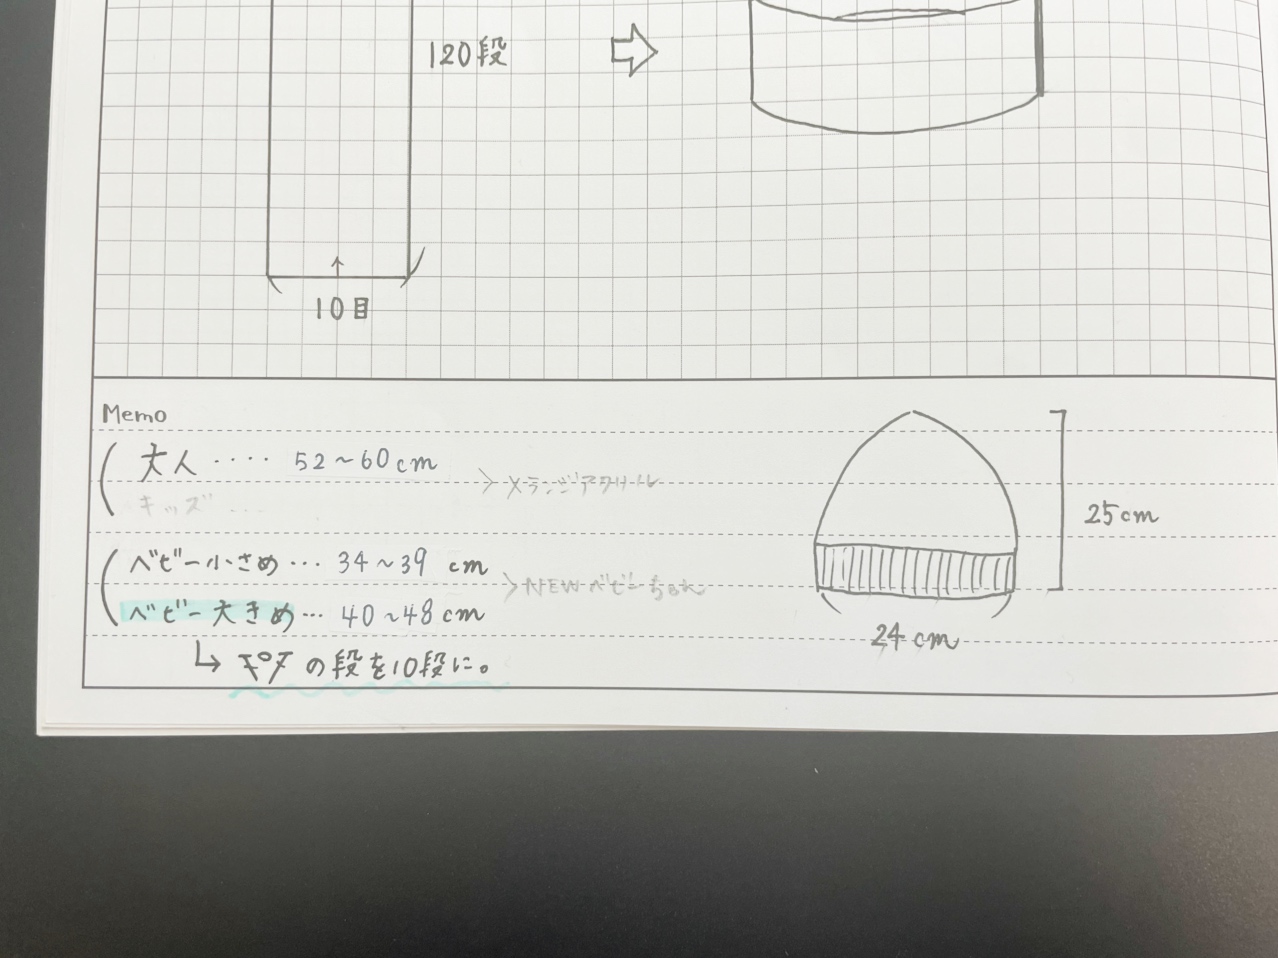 120段
10目
Memo
大人････ 52～60cm
キッズ ･･･
＞メランジアクリル
ベビー小さめ… 34～39 cm
ベビー大きめ… 40～48cm
＞NEWベビーちゃん
↳ の段を10段に。
25cm
24cm